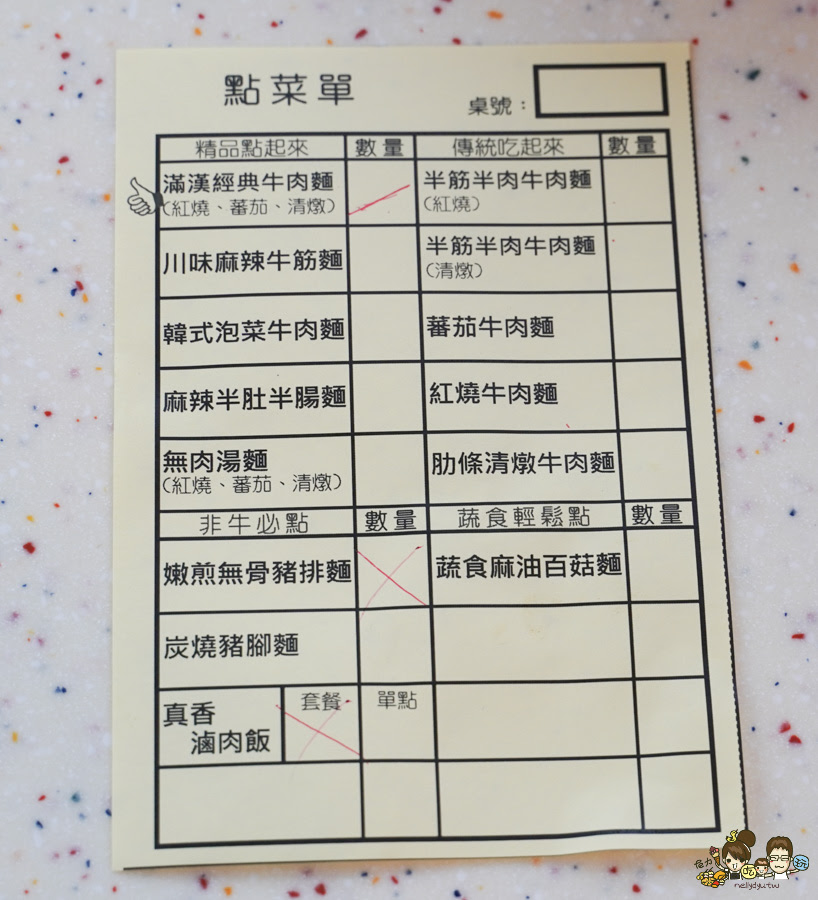 點菜單
桌號：
精品點起來 數量 傳統吃起來 數量
滿漢經典牛肉麵 半筋半肉牛肉麵
(紅燒、蕃茄、清燉) (紅燒)
川味麻辣牛筋麵 半筋半肉牛肉麵
(清燉)
韓式泡菜牛肉麵 蕃茄牛肉麵
麻辣半肚半腸麵 紅燒牛肉麵
無肉湯麵 肋條清燉牛肉麵
(紅燒、蕃茄、清燉)
非牛必點 數量 蔬食輕鬆點 數量
嫩煎無骨豬排麵 蔬食麻油百菇麵
炭燒豬腳麵
真香 套餐 單點
滷肉飯
吃 玩
nellydyu.tw